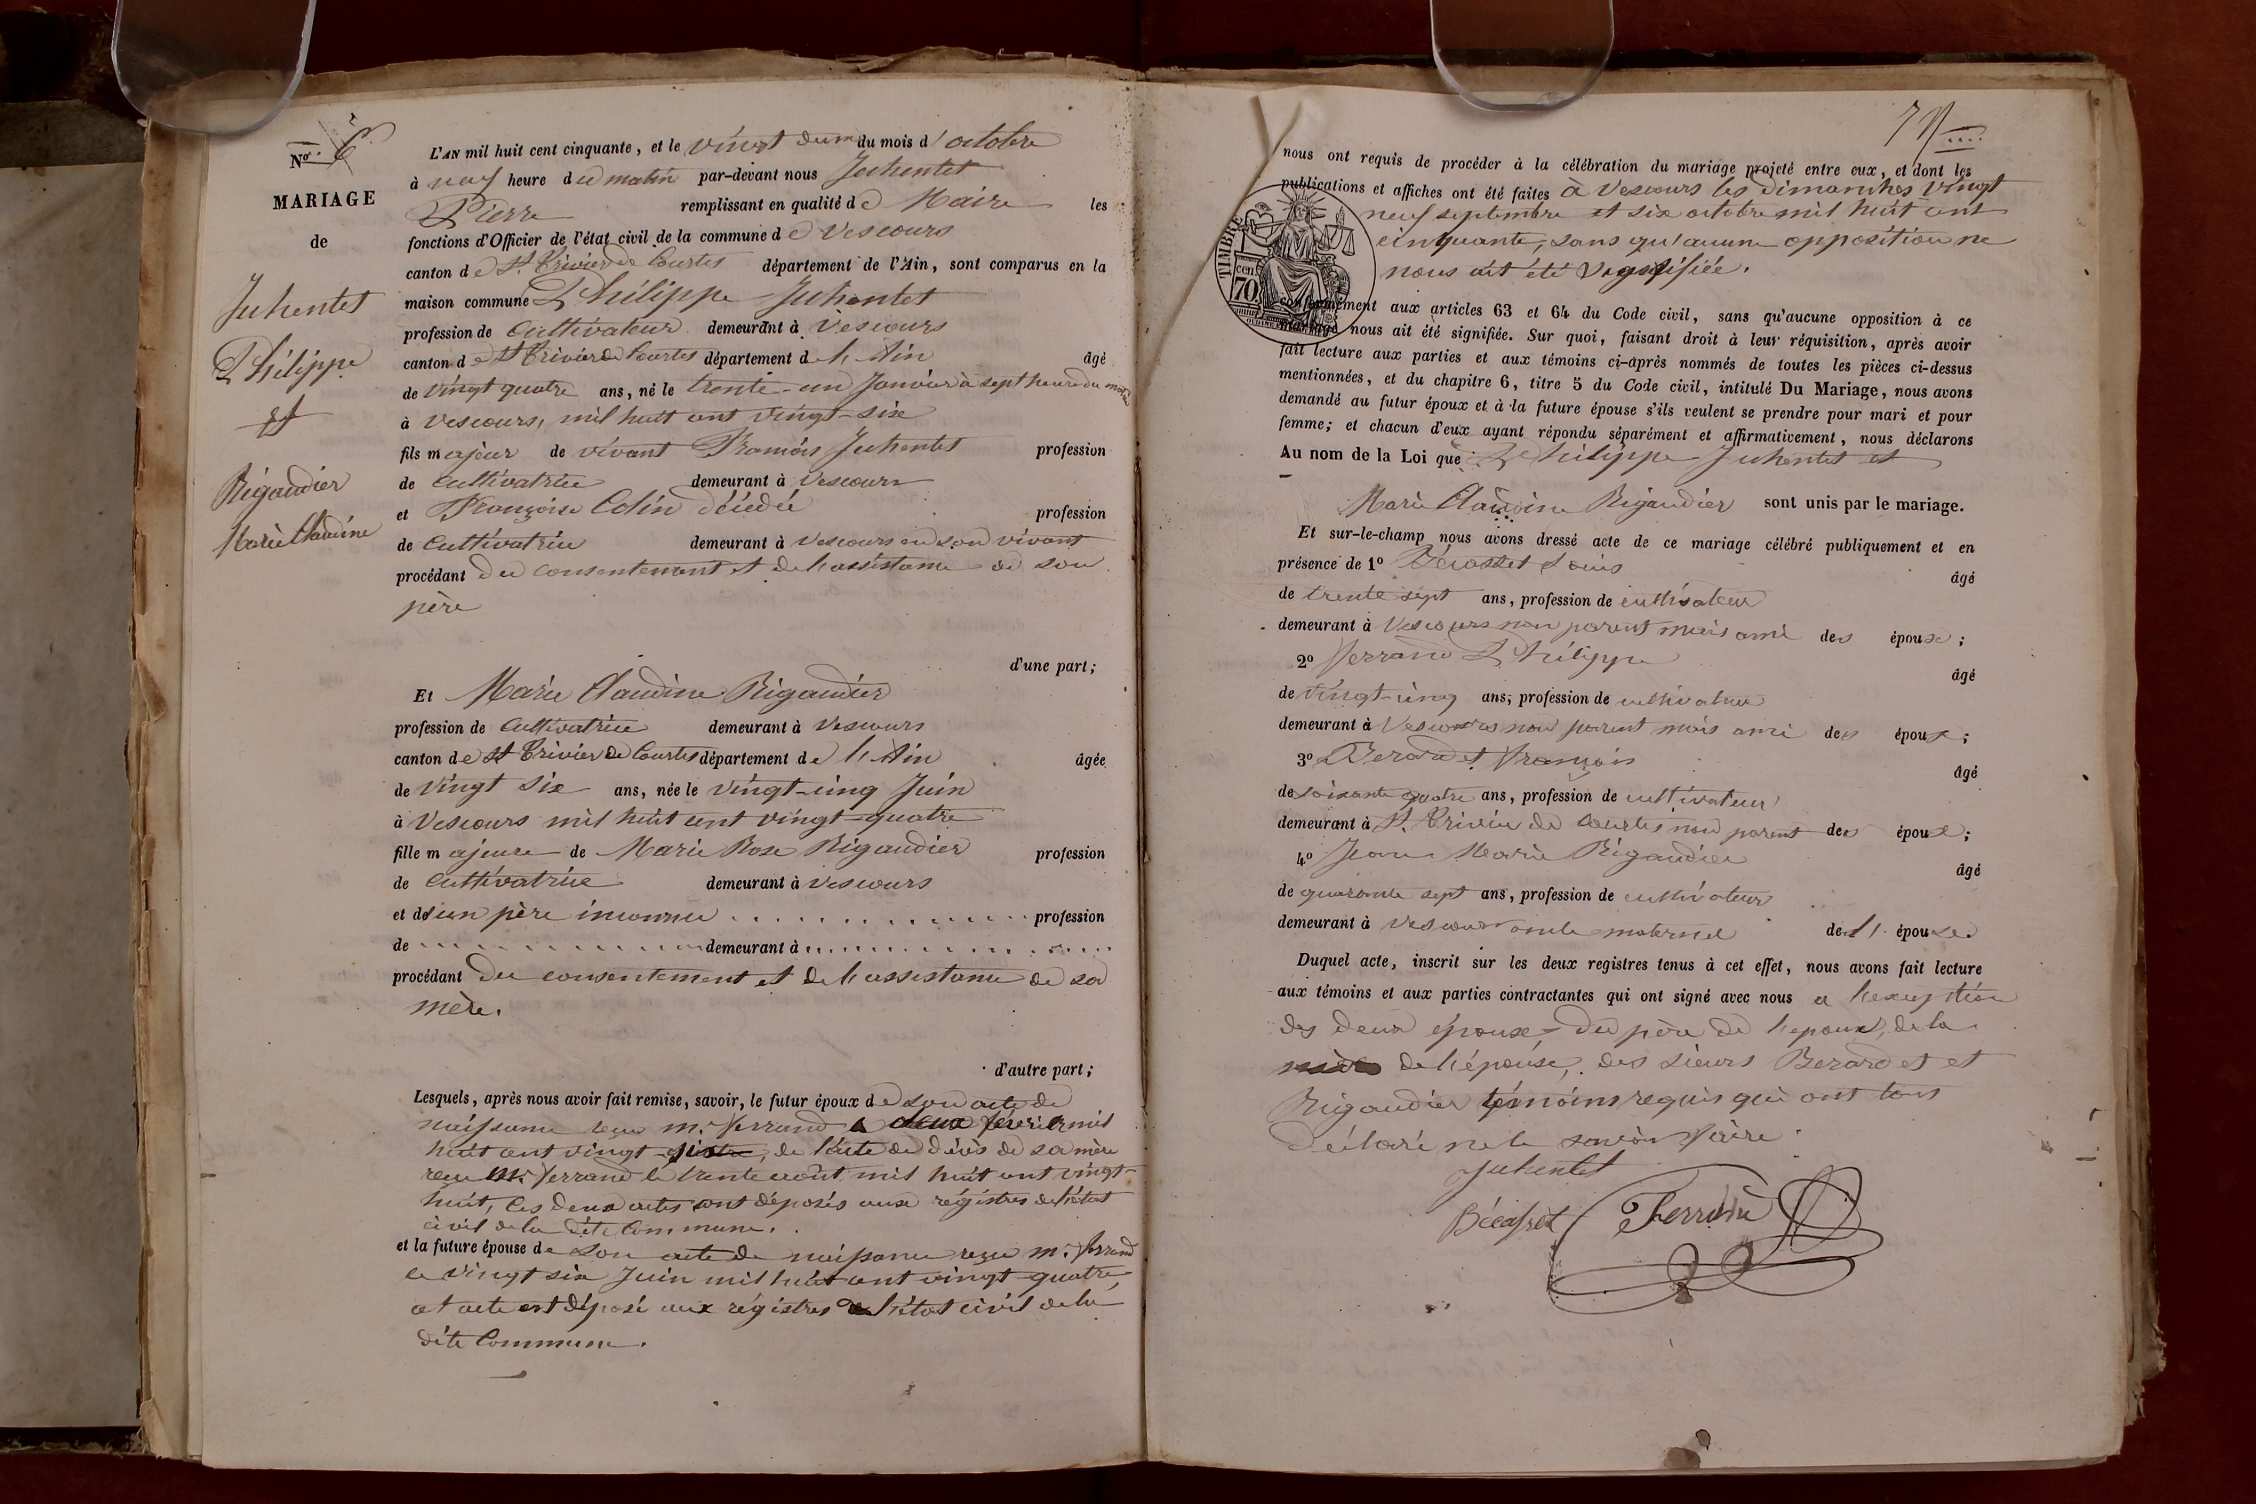 No. 6
MARIAGE
de
Juhentet
Philippe
et
Rigaudier
Marie Claudine
L'AN mil huit cent cinquante, et le vingt deux du mois d'octobre
à neuf heure du matin par-devant nous Juhentet
Pierre remplissant en qualité de Maire les
fonctions d'Officier de l'état civil de la commune de Vescours
canton de St Trivier de Courtes département de l'Ain, sont comparus en la
maison commune Philippe Juhentet
profession de cultivateur demeurant à Vescours
canton de St Trivier de Courtes département de l'Ain âgé
de vingt quatre ans, né le trente-un Janvier à sept heure du matin
à Vescours, mil huit cent vingt-six
fils majeur de vivant François Juhentet profession
de cultivatrice demeurant à Vescours
et Françoise Colin décédée profession
de cultivatrice demeurant à Vescours en son vivant
procédant du consentement et de l'assistance de son
père
d'une part;
Et Marie Claudine Rigaudier
profession de cultivatrice demeurant à Vescours
canton de St Trivier de Courtes département de l'Ain âgée
de vingt six ans, née le vingt-cinq Juin
à Vescours mil huit cent vingt-quatre
fille majeure de Marie Rose Rigaudier profession
de cultivatrice demeurant à Vescours
et d'un père inconnu profession
de demeurant à
procédant du consentement et de l'assistance de sa
mère.
d'autre part;
Lesquels, après nous avoir fait remise, savoir, le futur époux de son acte de
naissance reçu mr. Ferrand deux février mil
huit cent vingt-six, de l'acte de décès de sa mère
reçu Mr. Ferrand le trente août mil huit cent vingt-
huit, ces deux actes sont déposés aux régistres de l'état
civil de la dite Commune.
et la future épouse de son acte de naissance reçu mr. Ferrand
le vingt six Juin mil huit cent vingt-quatre
cet acte est déposé aux régistres de l'état civil de la
dite Commune.
nous ont requis de procéder à la célébration du mariage projeté entre eux, et dont les
publications et affiches ont été faites à Vescours les dimanches vingt
neuf septembre et six octobre mil huit cent
cinquante, sans qu'aucune opposition ne
nous ait été signifiée.
TIMBRE
70 cen.
conformément aux articles 63 et 64 du Code civil, sans qu'aucune opposition à ce
mariage nous ait été signifiée. Sur quoi, faisant droit à leur réquisition, après avoir
fait lecture aux parties et aux témoins ci-après nommés de toutes les pièces ci-dessus
mentionnées, et du chapitre 6, titre 5 du Code civil, intitulé Du Mariage, nous avons
demandé au futur époux et à la future épouse s'ils veulent se prendre pour mari et pour
femme; et chacun d'eux ayant répondu séparément et affirmativement, nous déclarons
Au nom de la Loi que Philippe Juhentet et
Marie Claudine Rigaudier sont unis par le mariage.
Et sur-le-champ nous avons dressé acte de ce mariage célébré publiquement et en
présence de 1o Bécasset Louis âgé
de trente sept ans, profession de cultivateur
demeurant à Vescours non parent mais ami des époux;
2o Ferrand Philippe âgé
de vingt-cinq ans, profession de cultivateur
demeurant à Vescours non parent mais ami des époux;
3o Berardet François âgé
de soixante quatre ans, profession de cultivateur
demeurant à St. Trivier de Courtes non parent des époux;
4o Jean Marie Rigaudier âgé
de quarante sept ans, profession de cultivateur
demeurant à Vescours oncle maternel de l'épouse.
Duquel acte, inscrit sur les deux registres tenus à cet effet, nous avons fait lecture
aux témoins et aux parties contractantes qui ont signé avec nous à l'exception
des deux époux, du père de l'époux, de la
mère de l'épouse, des sieurs Berardet et
Rigaudier témoins requis qui ont tous
déclaré ne le savoir faire.
Juhentet
Bécasset Ferrand